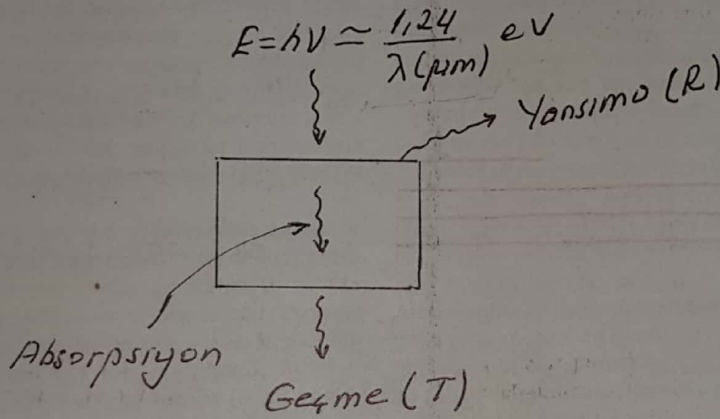 E=hν≃ 1,24/λ(μm) eV
Yansıma (R)
Absorpsiyon
Geçme (T)